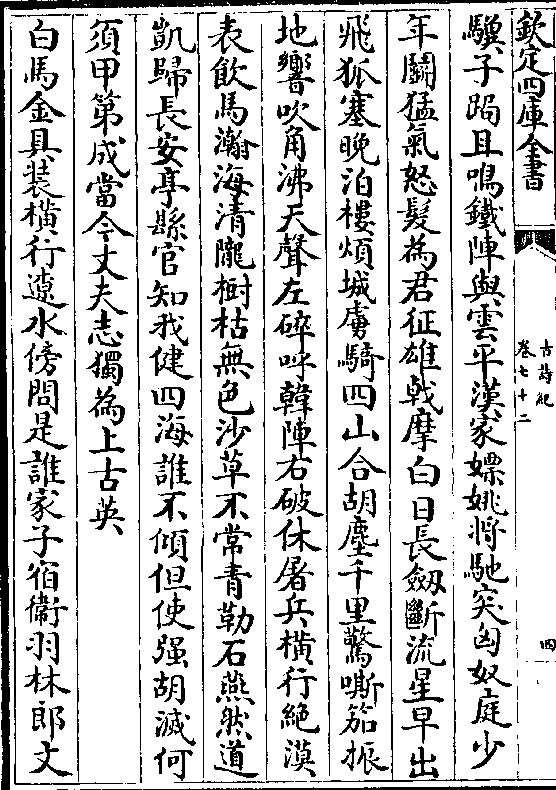 欽定四庫全書
古詩紀
卷七十二
四
驥子跼且鳴鐵陣與雲平漢家嫖姚將馳突匈奴庭少
年鬭猛氣怒髮為君征雄㦸摩白日長劔斷流星早出
飛狐塞晚泊樓煩城虜騎四山合胡塵千里驚嘶笳振
地響吹角沸天聲左碎呼韓陣右破休屠兵橫行絶漠
表飲馬瀚海清隴樹枯無色沙草不常青勒石燕然道
凱歸長安亭縣官知我健四海誰不傾但使强胡滅何
須甲第成當令丈夫志獨為上古英
白馬金具裝橫行遼水傍問是誰家子宿衞羽林郎文